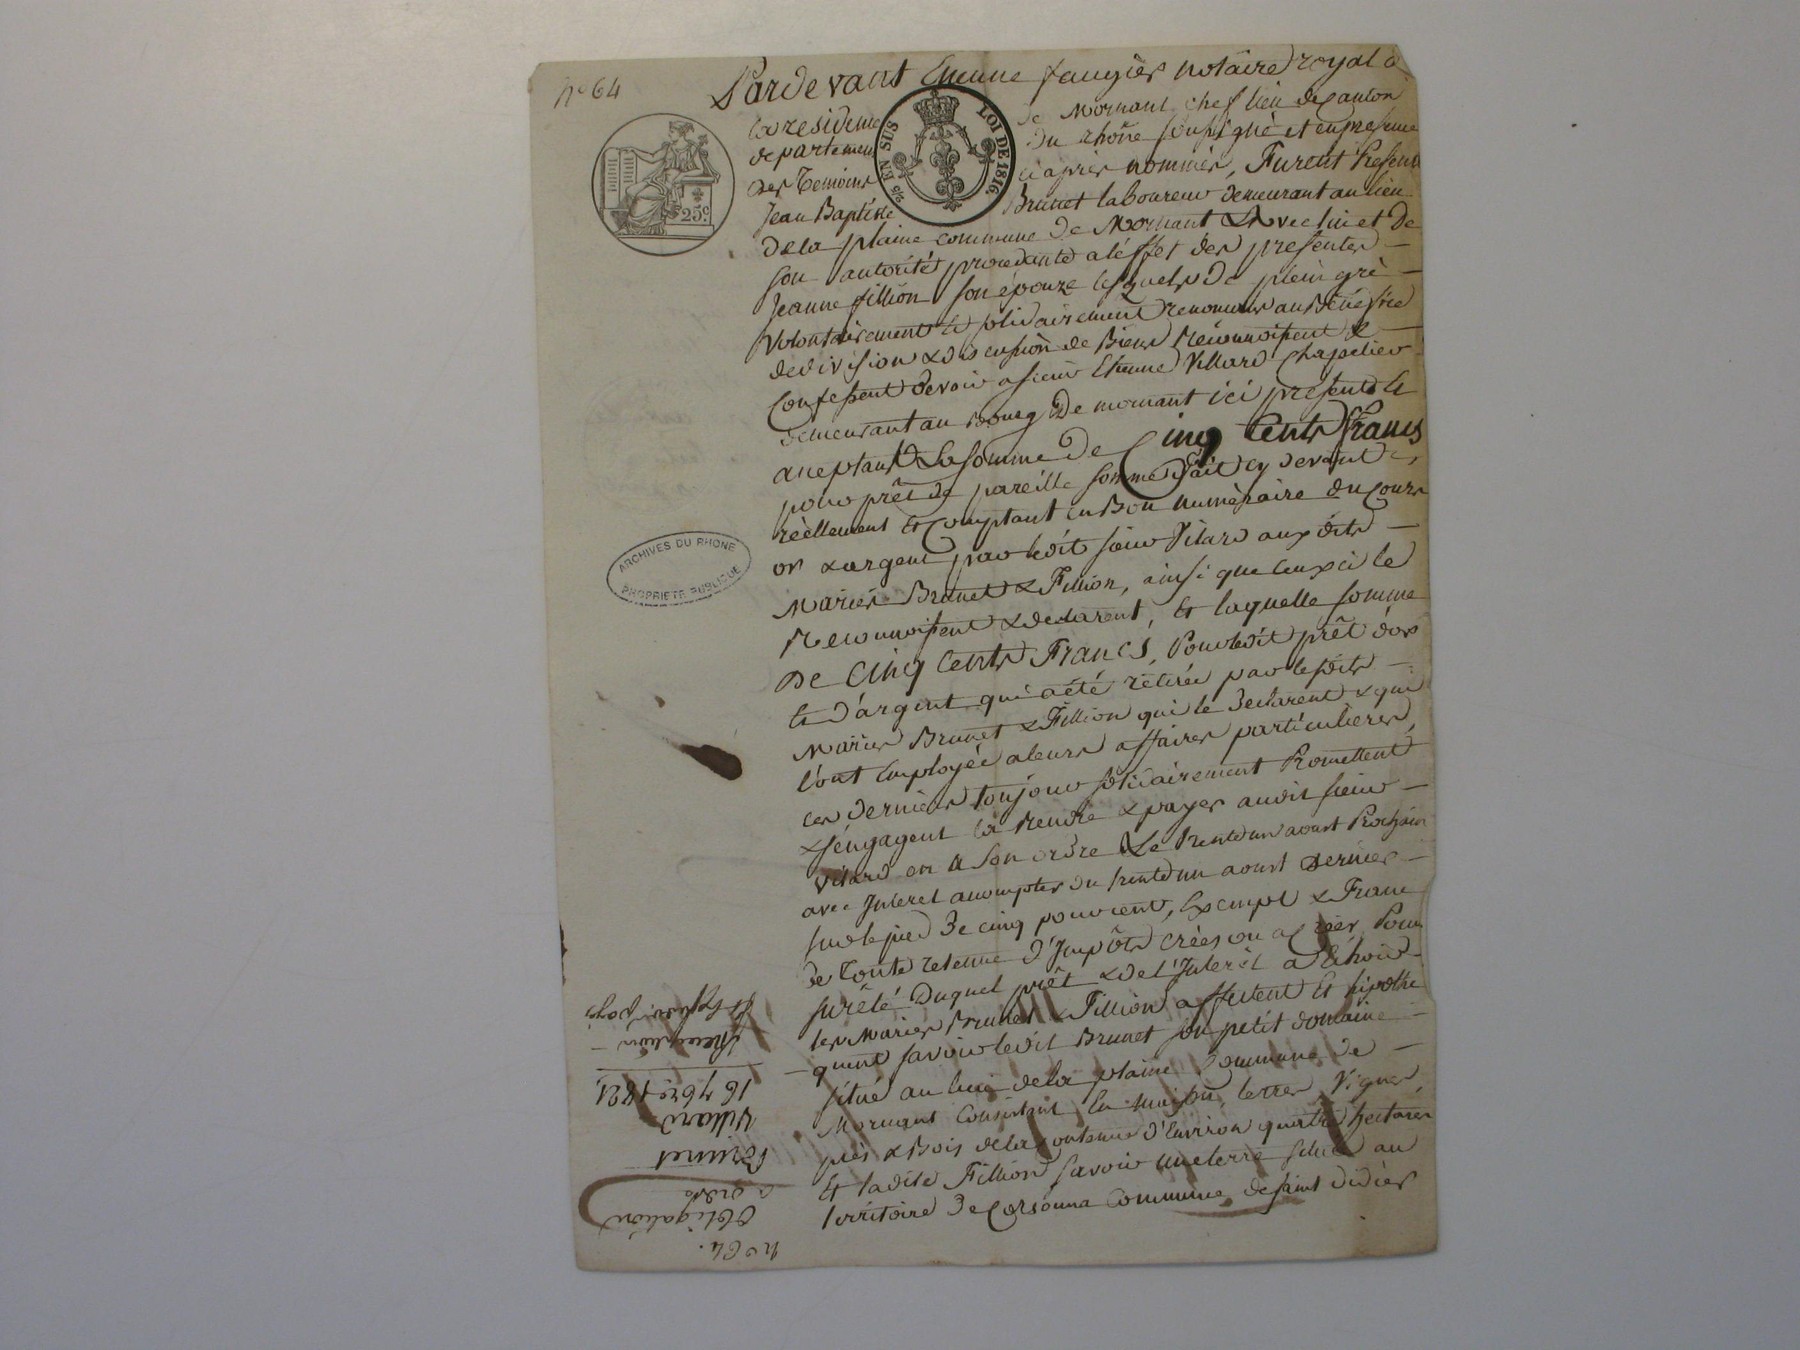 n° 64
Pardevant Etienne faugier notaire royal à
la residence de Mornant chef lieu de canton
departement du rhône soussigné et en presence
des temoins ci après nommés, Furent Presents
Jean Baptiste Brunet laboureur demeurant au lieu
de la plaine commune de Mornant & Avec lui et de
son autorité procedante a l'éffet des presentes —
Jeanne fillion son épouze lesquels de plein gré —
Volontairement et solidairement renoncants au Bénéfice
de division & discussion de Biens Reconnoissent & —
Confessent devoir a sieur Etienne Villard Chapelier
demeurant au Bourg De mornant ici present et
acceptant La somme de Cinq Cents Francs
pour prêt de pareille somme fait cy devant
réellement et Comptant en Bon numéraire du Cours
or & argent par ledit sieur Vilard aux dits —
Mariés Brunet & Fillion, ainsi que ceux ci le
Reconnoissent & declarent, Et laquelle somme
De Cinq Cents Francs, Pour ledit prêt d'or
et D'argent qui a été retirée par lesdits —
Mariés Brunet & Fillion qui le declarent & qui
l'ont Employée a leurs affaires particulieres,
ces derniers toujour solidairement Promettent
& s'engagent la Rendre & payer audit sieur —
Vilard ou A son ordre Le Trente un aoust Prochain
avec Interet a compter du trente un aoust dernier —
sur le pied De cinq pour cent, Exempt & Franc
de toute retenue D'Impôts créés ou a créer, Pour
surêté Duquel prêt & de l'Interêt a Echoir —
les Mariés Brunet & Fillion affectent Et hipothe
quent savoir ledit Brunet son petit domaine —
situé au lieu de la plaine Commune de —
Mornant Consistant En maison, terres, Vignes,
prés & Bois de la Contenue d'Environ quatre hectares
Et ladite Fillion savoir une terre située au
territoire De Corsonna Commune de saint didier
25 c.
2/5 EN SUS
LOI DE 1816.
ARCHIVES DU RHONE
PROPRIETE PUBLIQUE
n° 64.
Obligation
a ordre
Brunet
Villard
16 7bre 1821